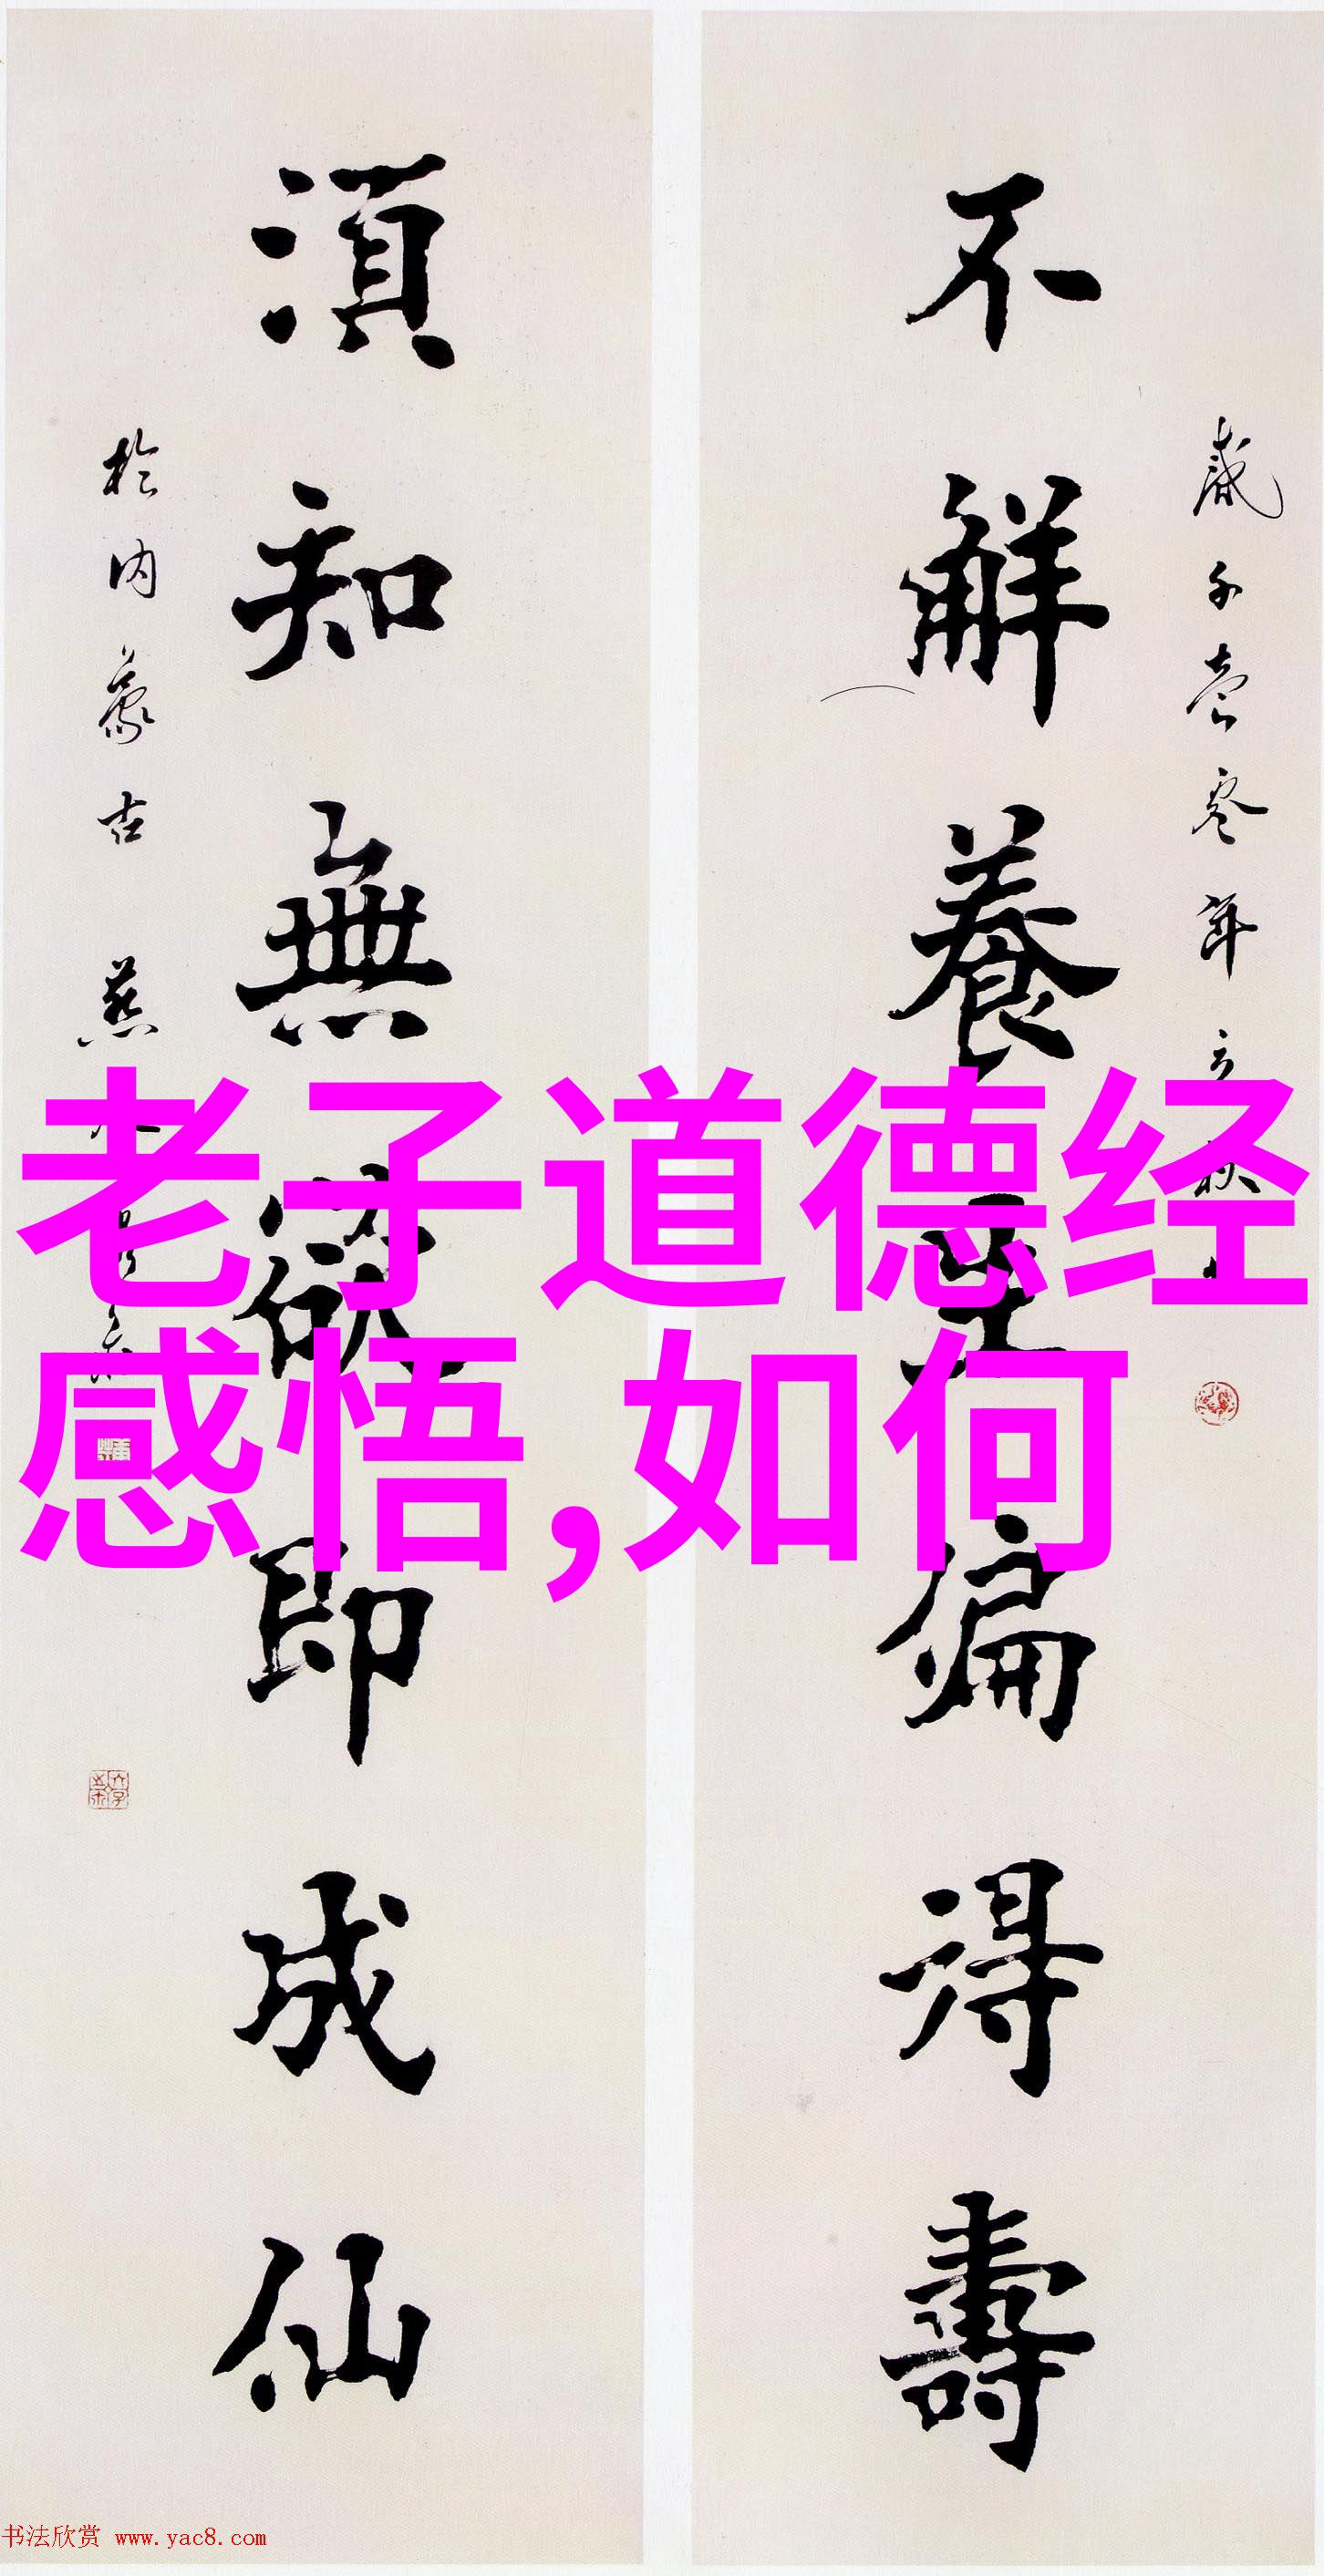 不解養生偏得壽
須知無欲即成仙
於内蒙古
老子道德经
感悟,如何
书法欣赏 www.yac8.com